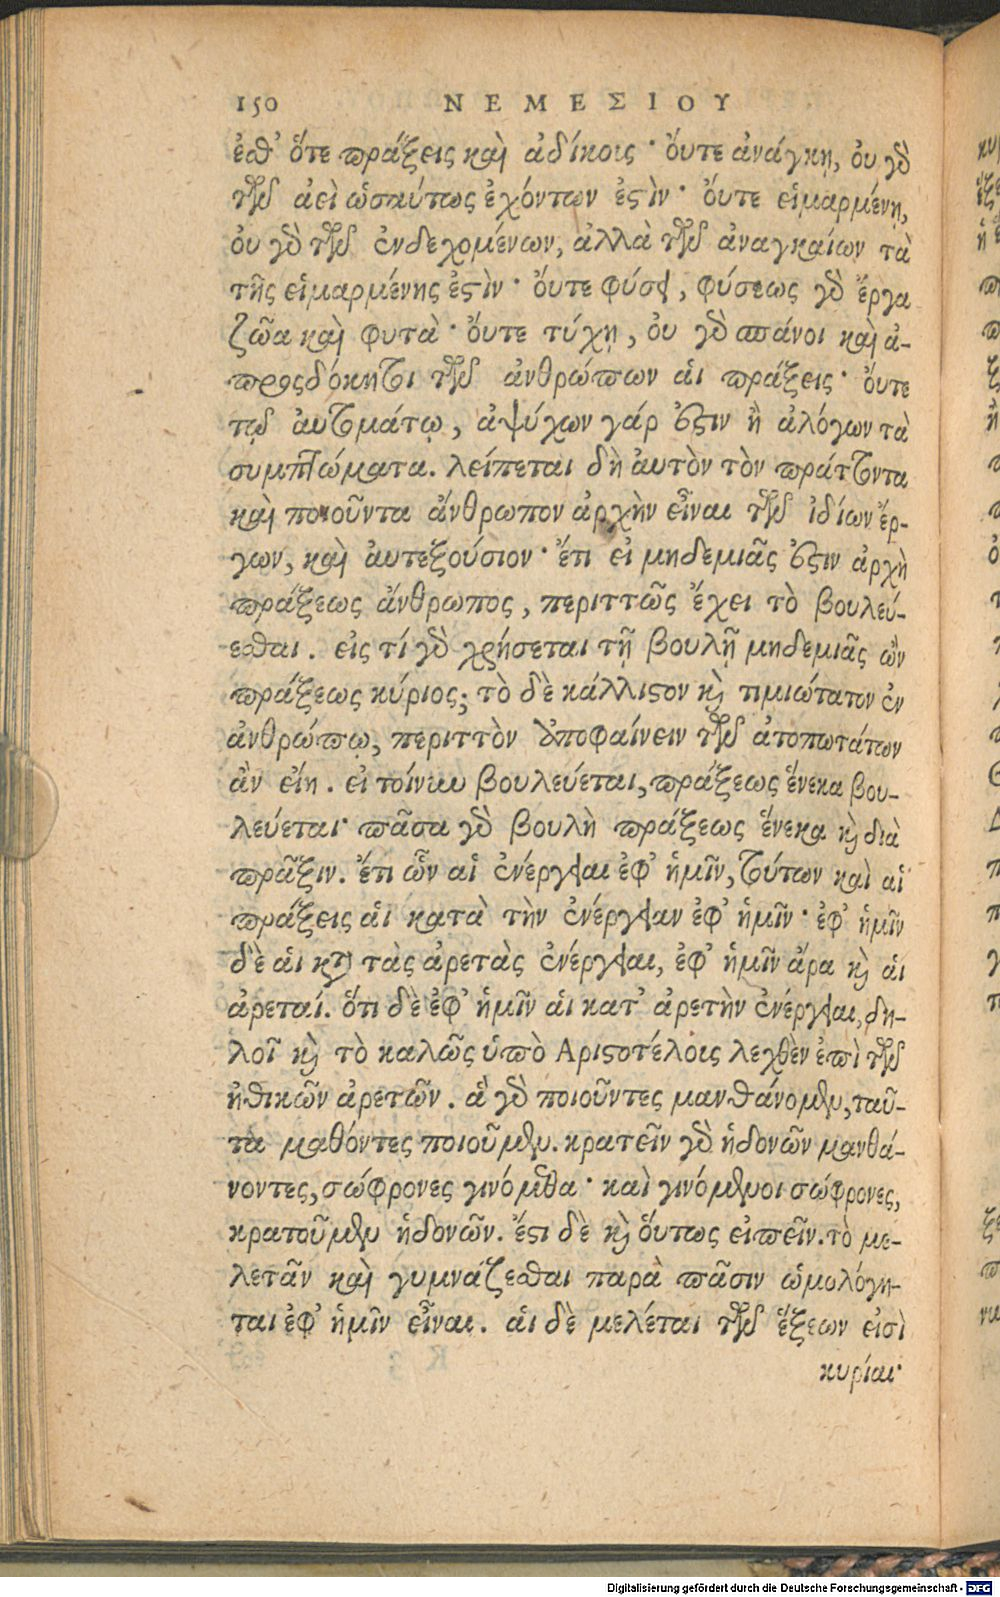 150 ΝΕΜΕΣΙΟΥ
ἐσθ᾽ ὅτε πράξεις καὶ ἀδίκοις· ὄυτε ἀνάγκῃ, ὀυ γὰρ
τῶν ἀεὶ ὡσαύτως ἐχόντων ἐςίν· ὄυτε εἱμαρμένῃ,
ὀυ γὰρ τῶν ἐνδεχομένων, ἀλλὰ τῶν ἀναγκαίων τὰ
τῆς εἱμαρμένης ἐςίν· ὄυτε φύσει, φύσεως γὰρ ἔργα
ζῶα καὶ φυτὰ· ὄυτε τύχῃ, ὀυ γὰρ σπάνοι καὶ ἀ-
προςδόκητοι τῶν ἀνθρώπων ἁι πράξεις· ὄυτε
τῷ ἀυτομάτῳ, ἀψύχων γάρ ἐςιν ἢ ἀλόγων τὰ
συμπτώματα. λείπεται δὴ ἀυτὸν τὸν πράττοντα
καὶ ποιοῦντα ἄνθρωπον ἀρχὴν εἶναι τῶν ἰδίων ἔρ-
γων, καὶ ἀυτεξούσιον· ἔτι εἰ μηδεμιᾶς ἐςιν ἀρχὴ
πράξεως ἄνθρωπος, περιττῶς ἔχει τὸ βουλεύ-
εσθαι. εἰς τί γὰρ χρήσεται τῇ βουλῇ μηδεμιᾶς ὢν
πράξεως κύριος; τὸ δὲ κάλλιςον καὶ τιμιώτατον ἐν
ἀνθρώπῳ, περιττὸν ἀποφαίνειν τῶν ἀτοπωτάτων
ἂν εἴη. εἰ τοίνυν βουλεύεται, πράξεως ἕνεκα βου-
λεύεται· πᾶσα γὰρ βουλὴ πράξεως ἕνεκα καὶ διὰ
πρᾶξιν. ἔτι ὧν αἱ ἐνέργειαι ἐφ᾽ ἡμῖν, τούτων καὶ αἱ
πράξεις ἁι κατὰ τὴν ἐνέργειαν ἐφ᾽ ἡμῖν· ἐφ᾽ ἡμῖν
δὲ ἁι κατὰ τὰς ἀρετὰς ἐνέργειαι, ἐφ᾽ ἡμῖν ἄρα καὶ ἁι
ἀρεταί. ὅτι δὲ ἐφ᾽ ἡμῖν ἁι κατ᾽ ἀρετὴν ἐνέργειαι, δη-
λοῖ καὶ τὸ καλῶς ὑπὸ Αριςοτέλοις λεχθὲν ἐπὶ τῶν
ἠθικῶν ἀρετῶν. ἃ γὰρ ποιοῦντες μανθάνομεν, ταῦ-
τα μαθόντες ποιοῦμεν. κρατεῖν γὰρ ἡδονῶν μανθά-
νοντες, σώφρονες γινόμεθα· καὶ γινόμενοι σώφρονες,
κρατοῦμεν ἡδονῶν. ἔςι δὲ καὶ ὅυτως εἰπεῖν. τὸ με-
λετᾶν καὶ γυμνάζεσθαι παρὰ πᾶσιν ὡμολόγη-
ται ἐφ᾽ ἡμῖν εἶναι. ἁι δὲ μελέται τῶν ἕξεων εἰσὶ
κυρίαι·
Digitalisierung gefördert durch die Deutsche Forschungsgemeinschaft - DFG